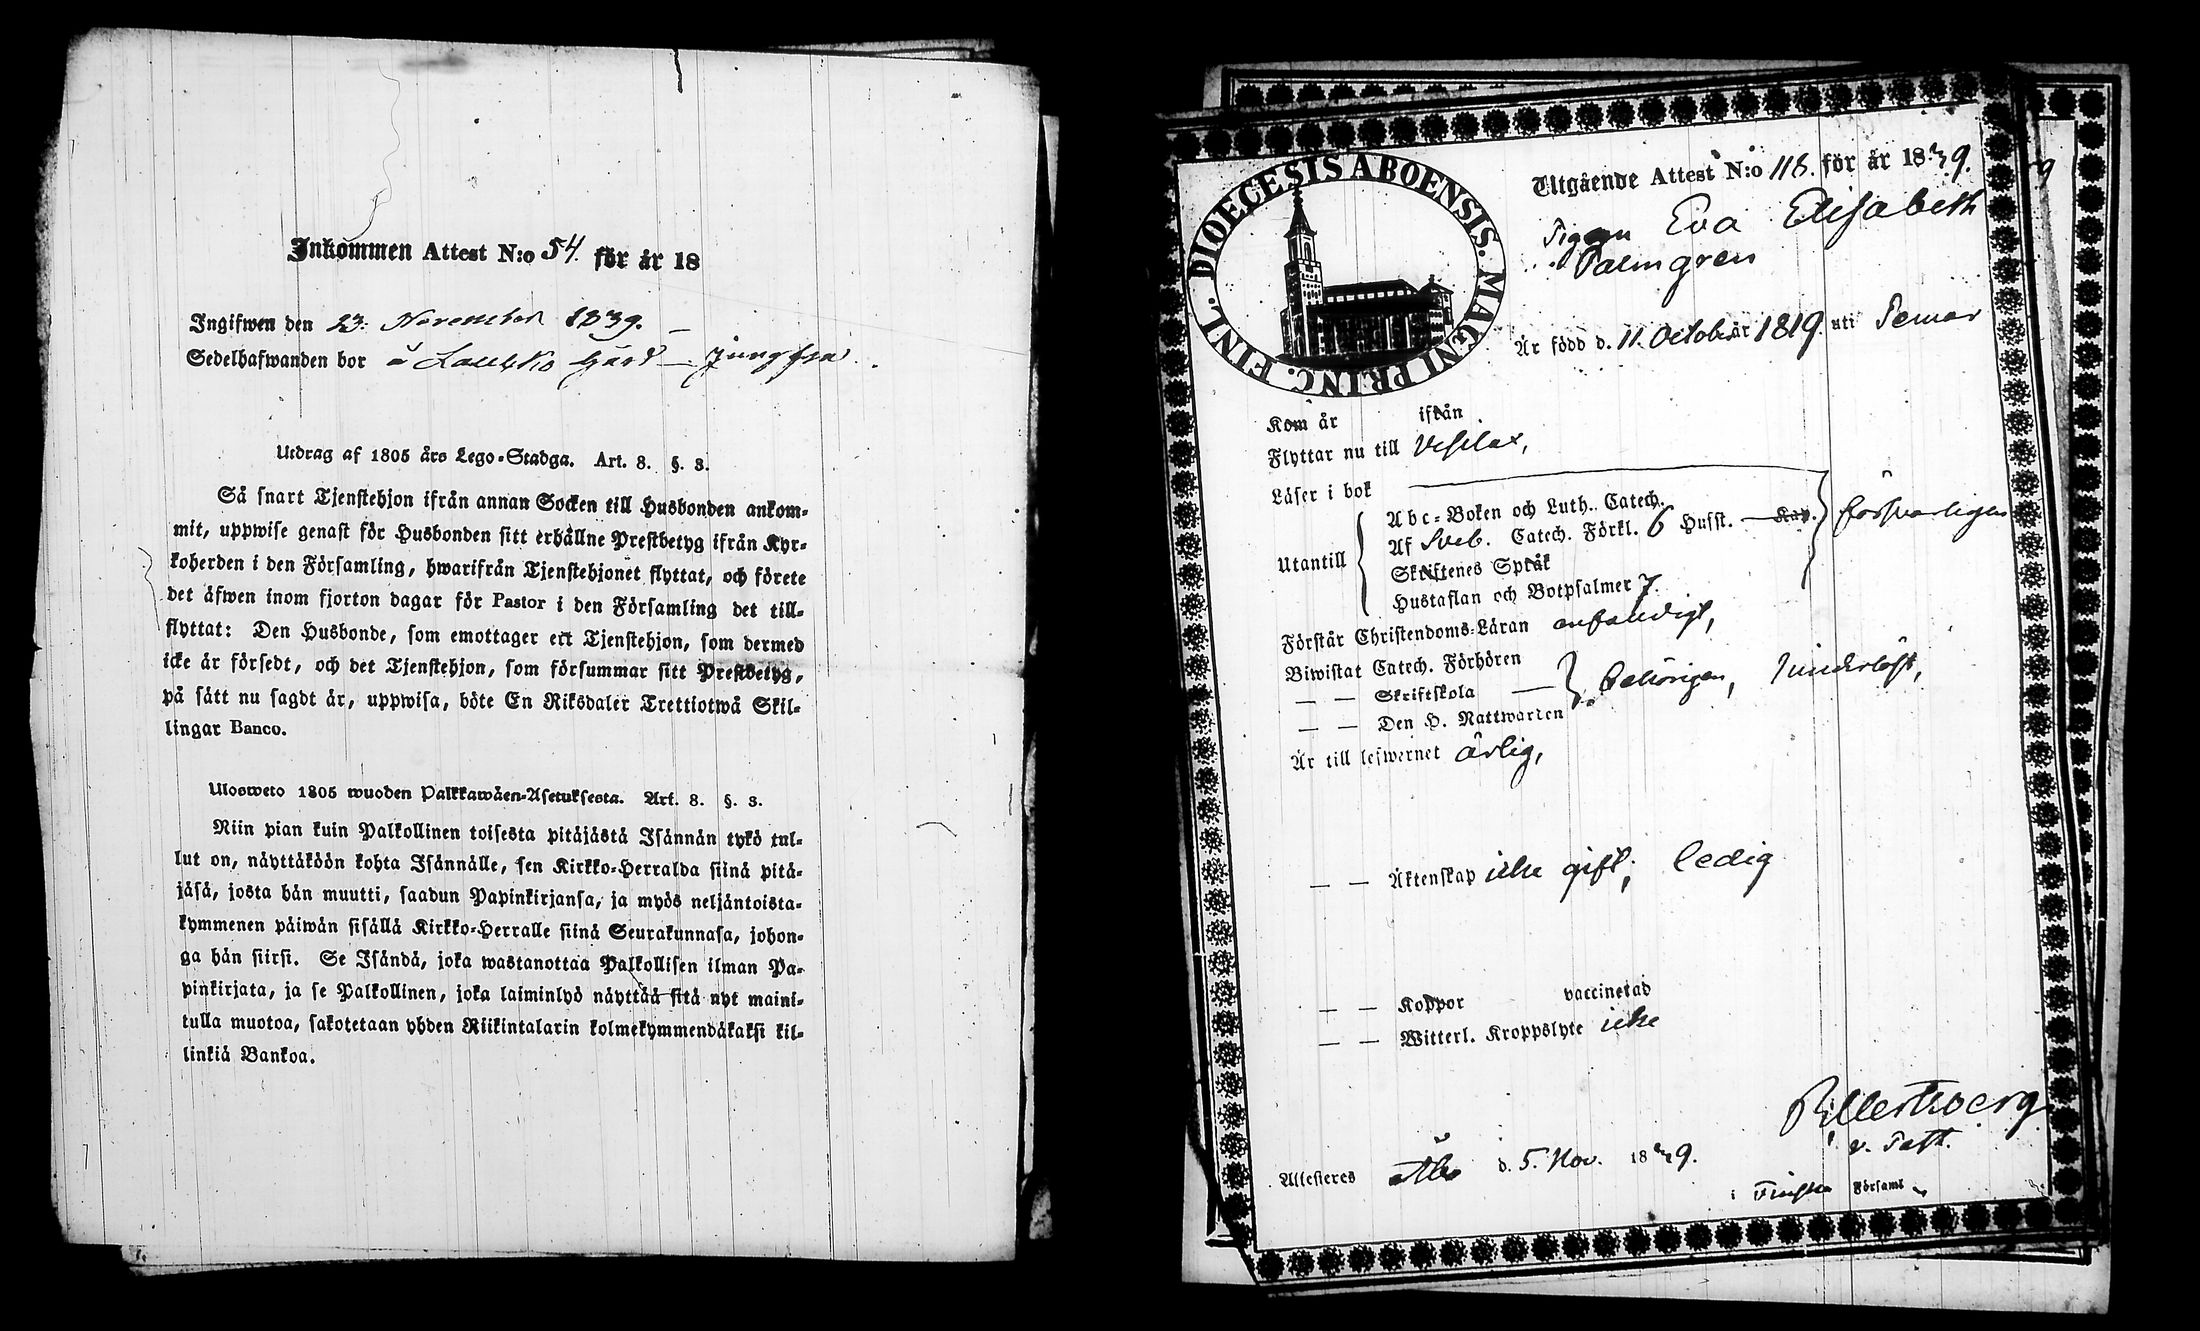 Inkommen Attest N:o 54. för år 18
Ingifwen den 23. November 1839. —
Sedelhafwanden bor å Laukko Gård — Jungfru.
Utdrag af 1805 års Lego-Stadga. Art. 8. §. 3.
Så snart Tjenstehjon ifrån annan Socken till Husbonden ankom-
mit, uppwise genast för Husbonden sitt erhållne Prestbetyg ifrån Kyr-
koherden i den Församling, hwarifrån Tjenstehjonet flyttat, och förete
det äfwen inom fjorton dagar för Pastor i den Församling det till-
flyttat: Den Husbonde, som emottager ett Tjenstehjon, som dermed
icke är försedt, och det Tjenstehjon, som försummar sitt Prestbetyg,
på sätt nu sagdt är, uppwisa, böte En Riksdaler Trettiotwå Skil-
lingar Banco.
Ulosweto 1805 wuoden Palkkawäen-Asetuksesta. Art. 8. §. 3.
Niin pian kuin Palkollinen toisesta pitäjästä Isännän tykö tul-
lut on, näyttäköön kohta Isännälle, sen Kirkko-Herralda siinä pitä-
jäsä, josta hän muutti, saadun Papinkirjansa, ja myös neljäntoista-
kymmenen päiwän sisällä Kirkko-Herralle siinä Seurakunnasa, johon-
ga hän siirsi. Se Isändä, joka wastanottaa Palkollisen ilman Pa-
pinkirjata, ja se Palkollinen, joka laiminlyö näyttää sitä nyt maini-
tulla muotoa, sakotetaan yhden Riikintalarin kolmekymmendäkaksi kil-
linkiä Bankoa.
DIOECESIS ABOENSIS. MAGNI PRINC. FINL.
Utgående Attest N:o 118. för år 1839.
Pigan Eva Elisabeth
Palmgren
Är född d. 11. October år 1819. uti Pemar
Kom år ifrån
Flyttar nu till Vesilax,
Läser i bok
Utantill
Abc-Boken och Luth. Catech.
Af Sveb. Catech. Förkl. 6 Husst. — Kap.
försvarligen
Skriftenes Språk
Hustaflan och Botpsalmer 7.
Förstår Christendoms-Läran enfaldigt,
Biwistat Catech. Förhören
— — Skriftskola —
behörigen,
— — Den H. Nattwarden
Är till lefwernet ärlig,
— — Äktenskap icke gift; ledig
— — Koppor vaccinerad
— — Witterl. Kroppslyte icke
v. Past.
Attesteres Åbo d. 5. Nov. 1839.
i Finska Församl